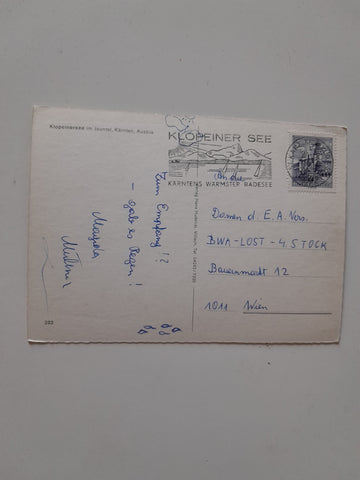 Klopeinersee im Jauntal, Kärnten, Austria
KLOPEINER SEE
KÄRNTENS WÄRMSTER BADESEE
Zum Empfang!?
- gab es Regen!
Magda
An die
Damen d. E.A. Vers.
BWA-LOST-4.STOCK
Bauernmarkt 12
1011 Wien